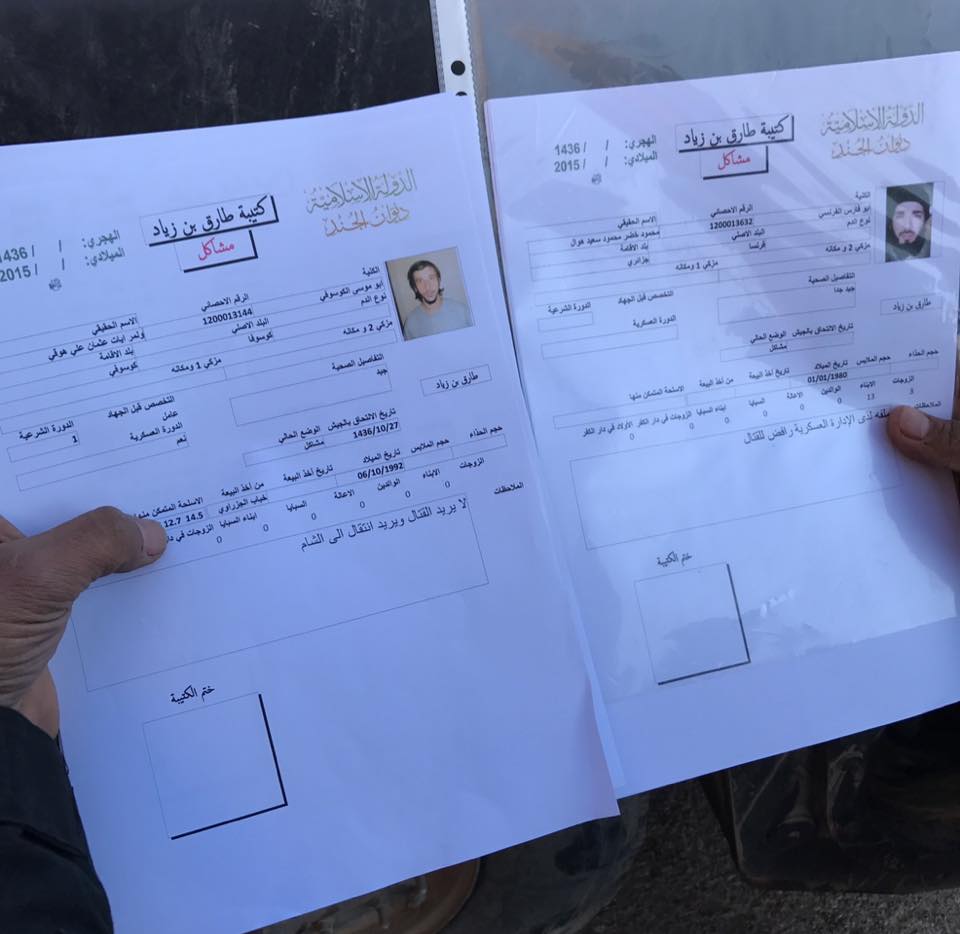 الدولة الاسلامية
ديوان الجند
كتيبة طارق بن زياد
مشاكل
الهجري: / / 1436
الميلادي: / / 2015
الكنية
ابو موسى الكوسوفي
الرقم الاحصائي
1200013144
الاسم الحقيقي
نوع الدم
البلد الاصلي
كوسوفا
بلد الاقامة
كوسوفي
مزكي 2 و مكانه
مزكي 1 ومكانه
التفاصيل الصحية
جيد
التخصص قبل الجهاد
عامل
الدورة الشرعية
1
الدورة العسكرية
نعم
طارق بن زياد
تاريخ الالتحاق بالجيش
1436/10/27
الوضع الحالي
مشاكل
حجم الحذاء
حجم الملابس
تاريخ الميلاد
06/10/1992
تاريخ أخذ البيعة
من أخذ البيعة
خباب الجزراوي
الاسلحة المتمكن منها
12.7 14.5
الزوجات
الابناء
0
الوالدين
0
الاعالة
0
السبايا
0
ابناء السبايا
0
الزوجات في دار
0
الملاحظات
لا يريد القتال ويريد انتقال الى الشام
ختم الكتيبة
الدولة الاسلامية
ديوان الجند
كتيبة طارق بن زياد
مشاكل
الهجري: / / 1436
الميلادي: / / 2015
الكنية
ابو فارس الفرنسي
الرقم الاحصائي
1200013632
الاسم الحقيقي
محمود خضر محمود سعيد هوال
نوع الدم
البلد الاصلي
فرنسا
بلد الاقامة
جزائري
مزكي 2 و مكانه
مزكي 1 ومكانه
التفاصيل الصحية
جيد جدا
التخصص قبل الجهاد
الدورة الشرعية
الدورة العسكرية
طارق بن زياد
تاريخ الالتحاق بالجيش
الوضع الحالي
مشاكل
حجم الحذاء
حجم الملابس
تاريخ الميلاد
01/01/1980
تاريخ أخذ البيعة
من أخذ البيعة
الاسلحة المتمكن منها
الزوجات
3
الابناء
13
الوالدين
0
الاعالة
0
السبايا
0
ابناء السبايا
0
الزوجات في دار الكفر
0
الأولاد في دار الكفر
0
الملاحظات
لدى الإدارة العسكرية رافض للقتال
ختم الكتيبة